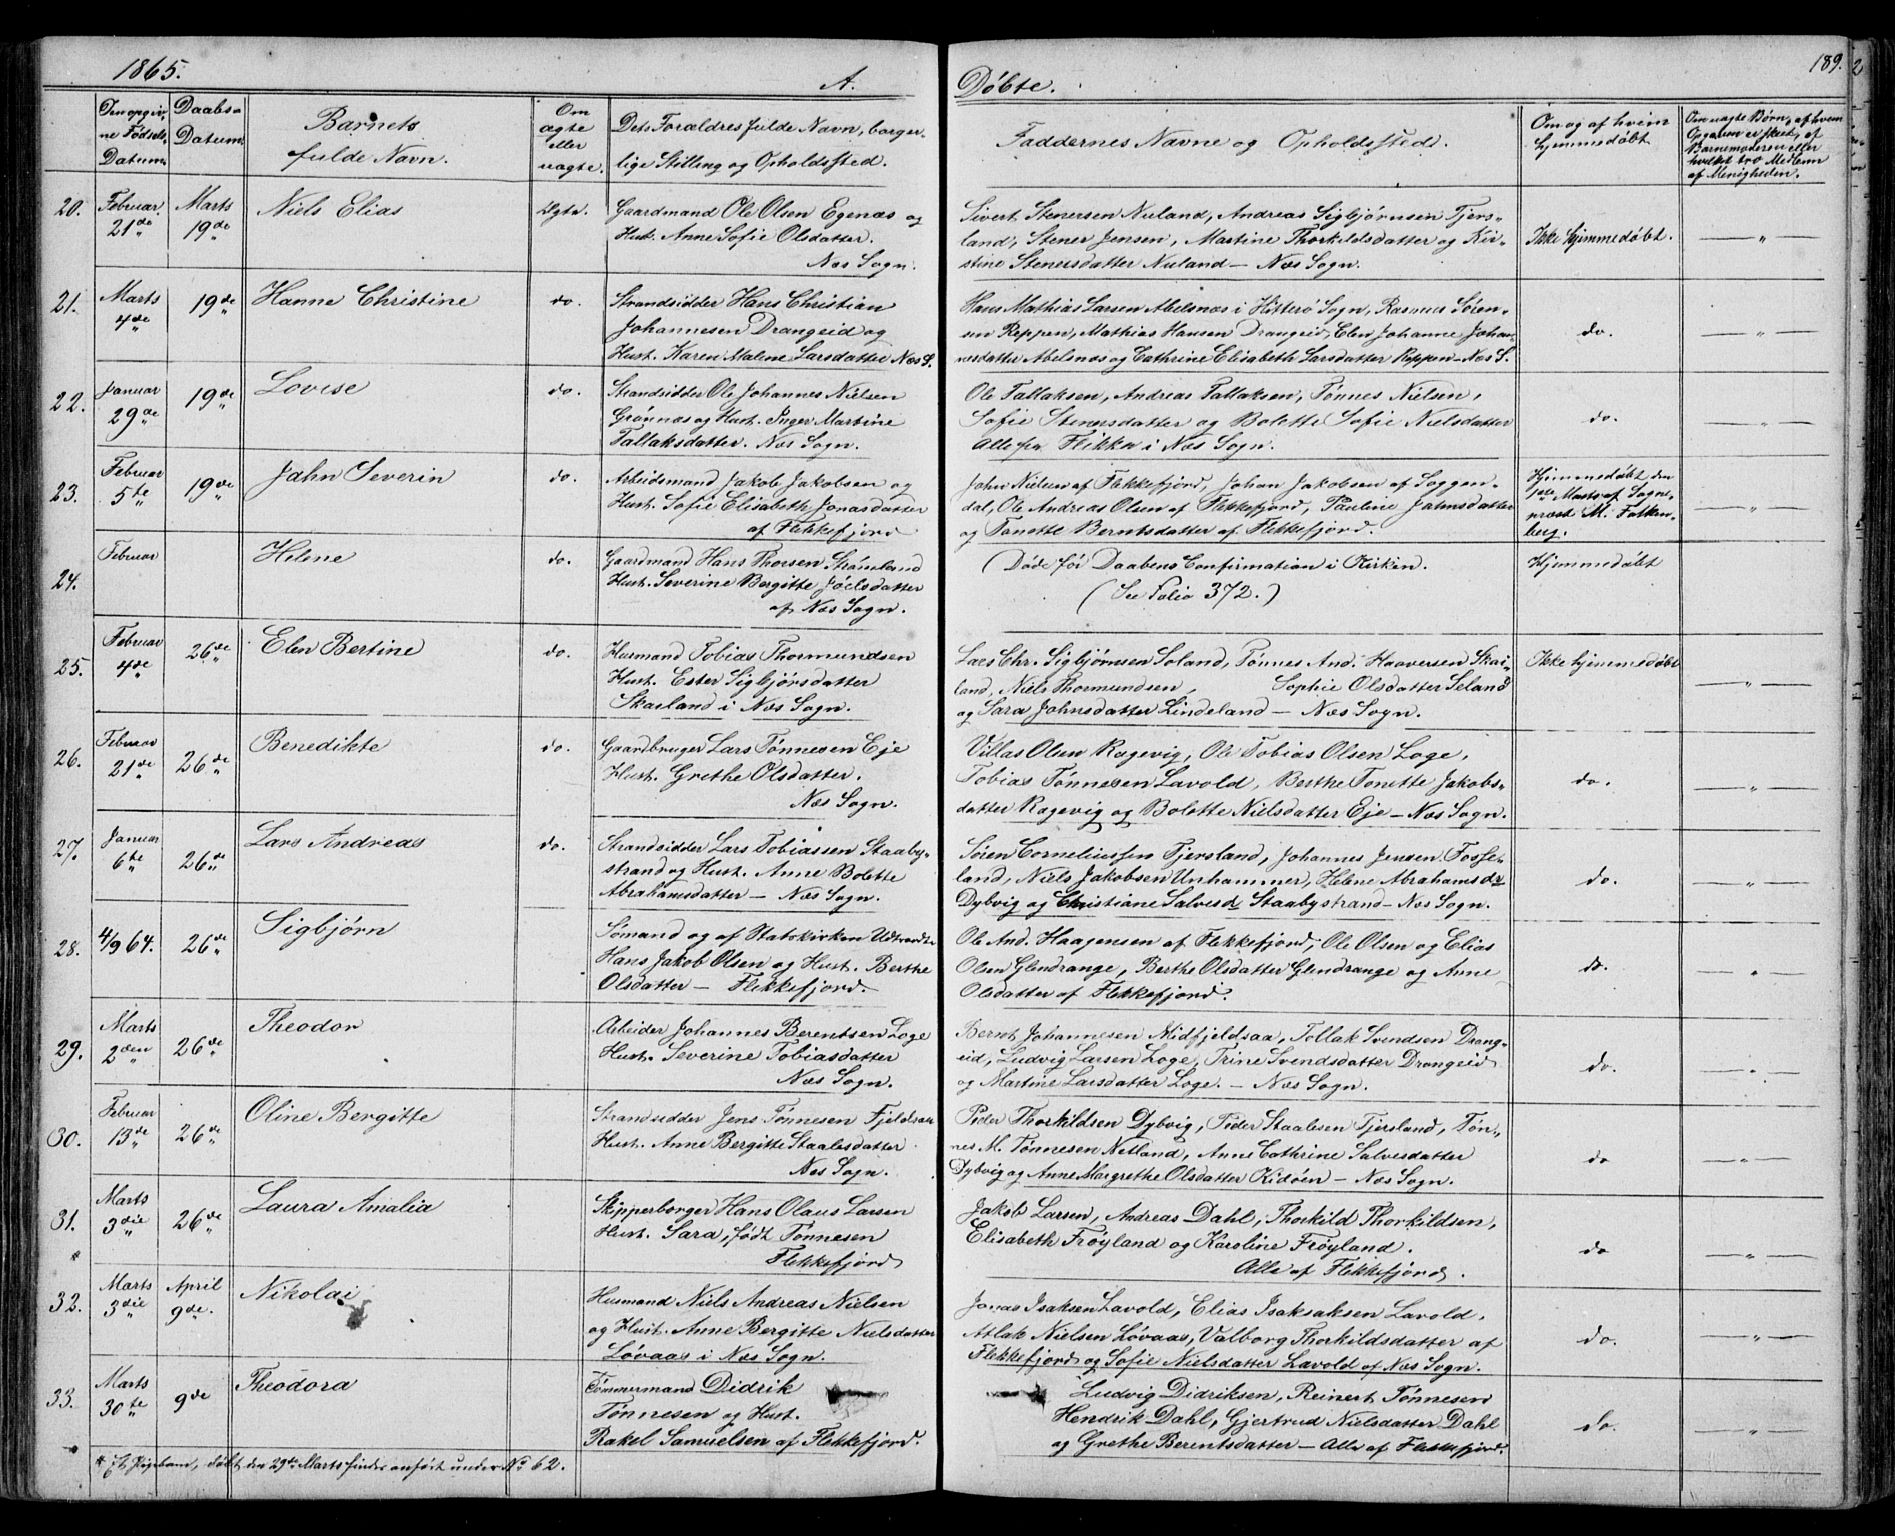 1865.
A.
Døbte.
189.
Den opgiv-
ne Fødsels-
Datum.
Daabs-
Datum.
Barnets
fulde Navn.
Om
ægte
eller
uægte.
Dets Forældres fulde Navn, borger-
lige Stilling og Opholdssted.
Faddernes Navne og Opholdssted.
Om og af hvem
hjemmedøbt.
Om uægte Børn, af hvem
Opgaven er skeet, af
Barnemoderen eller
hvilket tro Medlem
af Menigheden.
20.
Februar
21de
Marts
19de
Niels Elias
Ægte.
Gaardmand Ole Olsen Egenæs og
Hust. Anne Sofie Olsdatter.
Næs Sogn.
Sivert Stenersen Nuland, Andreas Sigbjørnsen Fjers-
land, Stener Jensen, Martine Thorkildsdatter og Kir-
stine Stenersdatter Nuland — Næs Sogn.
Ikke hjemmedøbt.
— " —
21.
Marts
4de
19de
Hanne Christine
do.
Strandsidder Hans Christian
Johannesen Drangeid og
Hust. Karen Malene Larsdatter Næs S.
Hans Mathias Larsen Abelsnæs i Hitterø Sogn, Rasmus Søren-
sen Reppen, Mathias Hansen Drangeid, Elen Johanne Johan-
nesdatter Abelsnæs og Cathrine Elisabeth Larsdatter Reppen - Næs S.
do.
— " —
22.
Januar
29de
19de
Lovise
do.
Strandsidder Ole Johannes Nielsen
Grønnæs og Hust. Inger Martine
Tallaksdatter. Næs Sogn.
Ole Tallaksen, Andreas Tallaksen, Tønnes Nielsen,
Sofie Stenersdatter og Bolette Sofie Nielsdatter
Alle fra Flikka i Næs Sogn.
do.
— " —
23.
Februar
5te
19de
Jahn Severin
do.
Arbeidsmand Jakob Jakobsen og
Hust. Sofie Elisabeth Jonasdatter
af Flekkefjord
John Nielsen af Flekkefjord, Johan Jakobsen af Soggen-
dal, Ole Andreas Olsen af Flekkefjord, Pauline Jahnsdatter
og Tonette Berntsdatter af Flekkefjord.
Hjemmedøbt den
Marts af Sogne-
præst M. Falken-
berg.
— " —
24.
Februar
Helene
do.
Gaardmand Hans Thorsen Strømland
Hust. Severine Bergitte Joelsdatter
af Næs Sogn.
(Døde før Daabens Confirmation i Kirken.
(See Folio 372.)
Hjemmedøbt
25.
Februar
4de
26de
Elen Bertine
do.
Husmand Tobias Thormundsen
Hust. Ester Sigbjørsdatter
Skasland i Næs Sogn.
Lars Chr. Sigbjørnsen Soland, Tønnes And. Haaversen Skas-
land, Niels Thormundsen, Sophie Olsdatter Seland
og Sara Johnsdatter Lindeland — Næs Sogn.
Ikke hjemmedøbt
— " —
26.
Februar
21de
26de
Benedikte
do.
Gaardbruger Lars Tønnesen Eje
Hust. Grethe Olsdatter.
Næs Sogn.
Villas Olsen Ragevig, Ole Tobias Olsen Loge,
Tobias Tønnesen Lavold, Berthe Tonette Jakobs-
datter Ragevig og Bolette Nielsdatter Eje — Næs Sogn.
do.
— " —
27.
Januar
6te
26de
Lars Andreas
do.
Strandsidder Lars Tobiassen Staaby-
strand og Hust. Anne Bolette
Abrahamsdatter — Næs Sogn.
Søren Corneliussen Fjersland, Johannes Jensen Fosse-
land, Niels Jakobsen Unhammer, Helene Abrahamsdr
Dybvig og Christiane Salvesd Staabystrand — Næs Sogn.
do.
— " —
28.
4/9 64.
26de
Sigbjørn
Sømand og af Statskirken Udtraadte
Hans Jakob Olsen og Hust. Berthe
Olsdatter — Flekkefjord.
Ole And. Haagensen af Flekkefjord, Ole Olsen og Elias
Olsen Glendrange, Berthe Olsdatter Glendrange og Anne
Olsdatter af Flekkefjord.
do.
"
29.
Marts
2den
26de
Theodor
Arbeider Johannes Berentsen Loge
Hust. Severine Tobiasdatter
Næs Sogn.
Bernt Johannesen Midfjeldsaa, Tollak Svendsen Drang-
eid, Ludvig Larsen Loge, Trine Svendsdatter Drangeid
og Martine Larsdatter Loge. — Næs Sogn.
do.
— " —
30.
Februar
13de
26de
Oline Bergitte
Strandsidder Jens Tønnesen Fjeldsaa
Hust. Anne Bergitte Staalesdatter
Næs Sogn.
Peder Thorkildsen Dybvig, Peder Staalesen Fjersland, Tøn-
nes M. Tønnesen Netland, Anne Cathrine Salvesdatter
Dybvig og Anne Margrethe Olsdatter Kidøen — Næs Sogn.
do
— " —
31.
*
Marts
3die
26de
Laura Amalia
Skipperborger Hans Olaus Larsen
Hust. Sara, født Tønnesen
Flekkefjord
Jakob Larsen, Andreas Dahl, Thorkild Thorkildsen,
Elisabeth Frøyland og Karoline Frøyland.
Alle af Flekkefjord.
do
— " —
32.
Marts
3die
April
9de.
Nikolai
Husmand Niels Andreas Nielsen
og Hust. Anne Bergitte Nielsdatter
Løvaas i Næs Sogn.
Jonas Isaksen Lavold, Elias Isaksaksen Lavold,
Atlak Nielsen Løvaas, Valborg Thorkildsdatter af
Flekkefjord og Sofie Nielsdatter Lavold af Næs Sogn.
do.
— " —
33.
Marts
30te
9de
Theodora
Tømmermand Didrik
Tønnesen og Hust.
Rakel Samuelsen af Flekkefjord.
Ludvig Didriksen, Reinert Tønnesen
Hendrik Dahl, Gjertrud Nielsdatter Dahl
og Grethe Berentsdatter — Alle af Flekkefjord.
do.
— " —
* Et Pigebarn, døbt den 29de Marts findes anført under No 62.